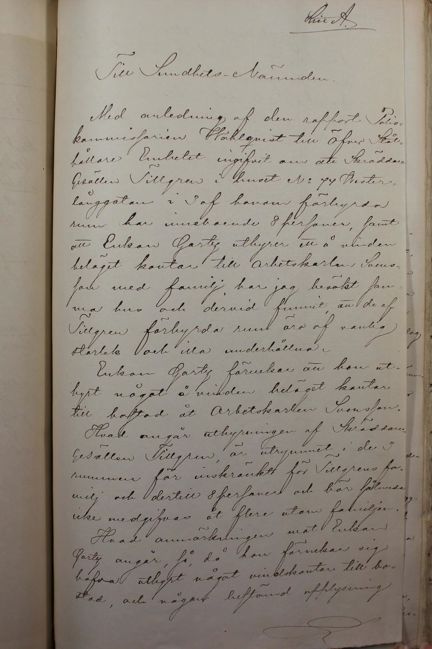 Litt A.
Till Sundhets-Nämnden.
Med anledning af den rapport Polis-
kommissarien Stählqvist till Öfver Ståt-
hållare Embetet ingifvit om att Skräddare
Gesällen Tillgren i huset No 74 Wester-
långgatan i 2 af honom förhyrda
rum har inneboende 8 personer, samt
att Enkan Garty uthyrer ett å vinden
beläget kontor till Arbetskarlen Svens-
son med familj, har jag besökt sam-
ma hus och dervid funnit att de af
Tillgren förhyrda rum äro af vanlig
storlek och illa underhållna.
Enkan Garty förnekar att hon ut-
hyrt något å vinden beläget kontor
till bostad åt Arbetskarlen Svensson.
Hvad angår uthyrningen af Skräddare
Gesällen Tillgren, är utrymmet i de 2
rummen för inskränkt för Tillgrens fa-
milj och dertill 8 personer och bör således
icke medgifvas åt flere utom familjen.
Hvad anmärkningen mot Enkan
Garty angår, så, då hon förnekar sig
hafva uthyrt något vindskontor till bo-
stad, och någon bestämd upplysning